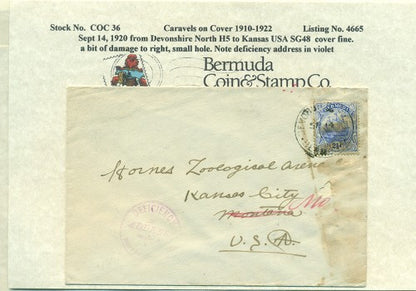 Stock No. COC 36 Caravels on Cover 1910-1922 Listing No. 4665
Sept 14, 1920 from Devonshire North H5 to Kansas USA SG48 cover fine.
a bit of damage to right, small hole. Note deficiency address in violet
Bermuda
Coin & Stamp Co.
Hornes Zoological Arena
Kansas City
Montana Mo
U.S.A.
DEFICIENCY